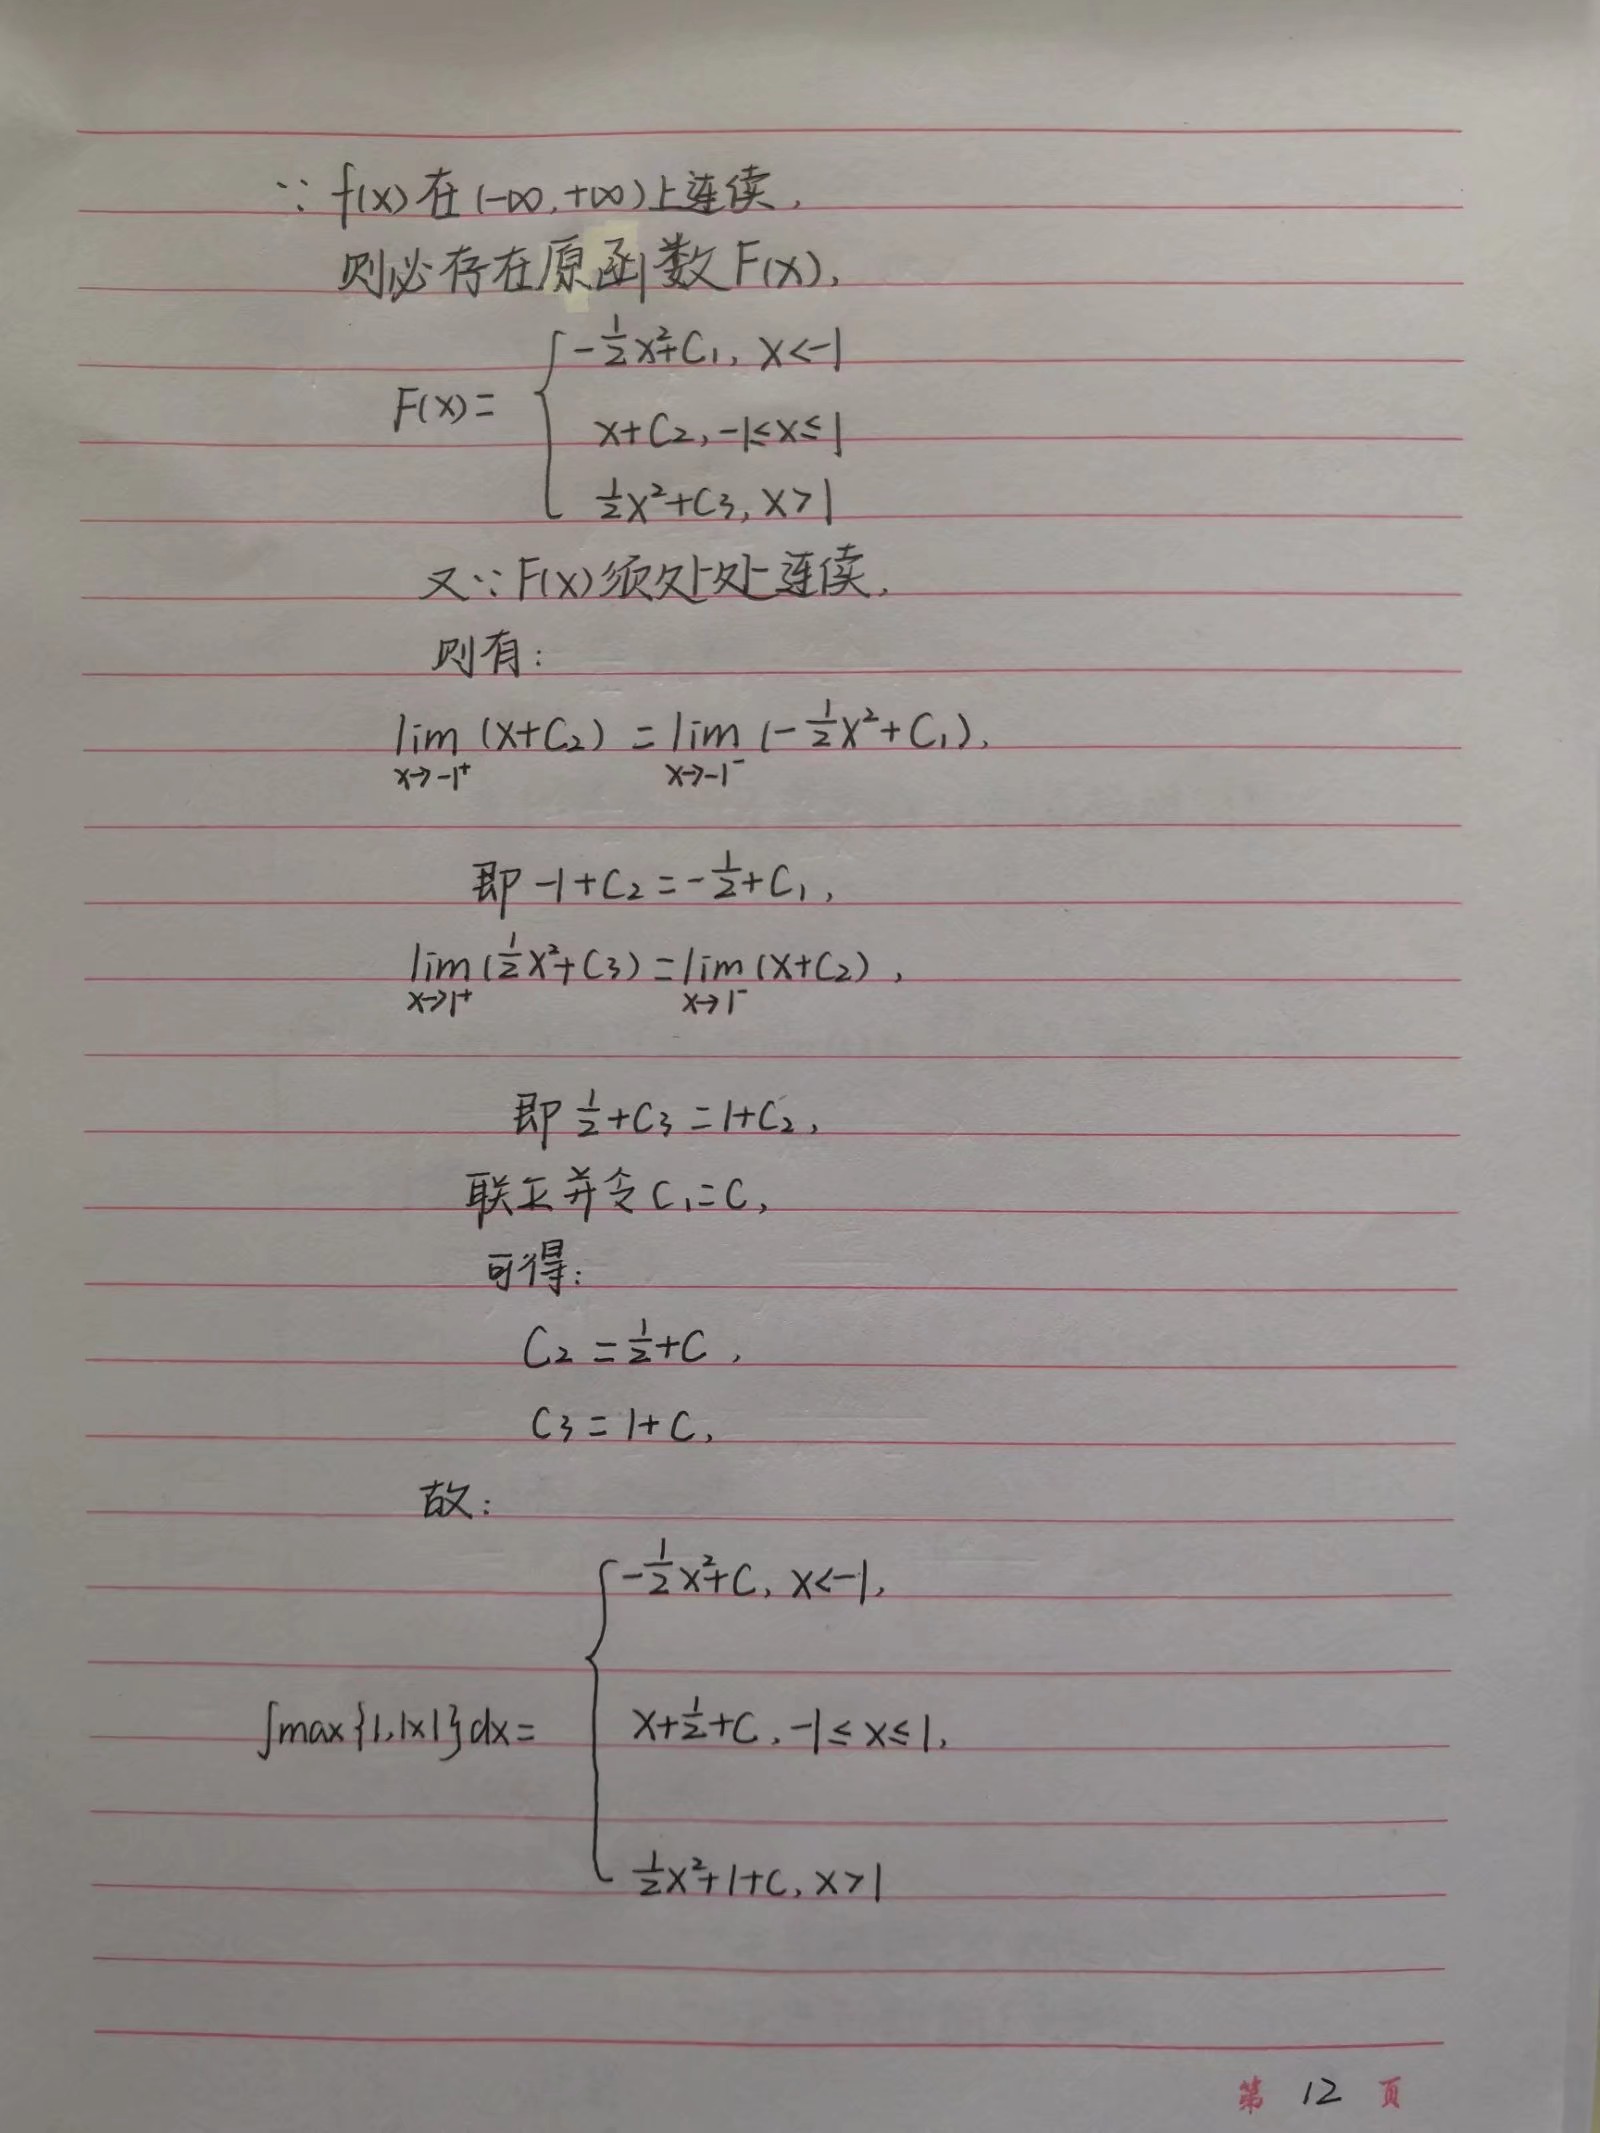 ∵ f(x)在(-∞,+∞)上连续,
则必存在原函数F(x),
F(x)= { -1/2x²+C₁, x<-1
x+C₂, -1≤x≤1
1/2x²+C₃, x>1
又∵F(x)须处处连续,
则有:
lim(x→-1⁺) (x+C₂) = lim(x→-1⁻) (-1/2x²+C₁),
即 -1+C₂=-1/2+C₁,
lim(x→1⁺) (1/2x²+C₃)=lim(x→1⁻) (x+C₂),
即 1/2+C₃=1+C₂,
联立并令C₁=C,
可得:
C₂=1/2+C,
C₃=1+C,
故:
∫max{1,|x|}dx= { -1/2x²+C, x<-1,
x+1/2+C, -1≤x≤1,
1/2x²+1+C, x>1
第 12 頁